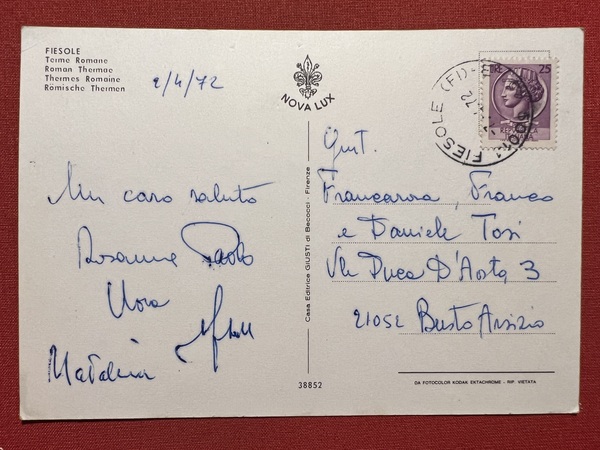 FIESOLE
Terme Romane
Roman Thermae
Thermes Romaine
Römische Thermen
2/4/72
NOVA LUX
Un caro saluto
Rosanna Paolo
Nora
Casa Editrice GIUSTI di Becocci - Firenze
38852
FIESOLE (FI)
25
Gent.
Francarosa, Franco
e Daniele Tosi
Vle Duca D'Aosta 3
21052 Busto Arsizio
DA FOTOCOLOR KODAK EKTACHROME - RIP. VIETATA